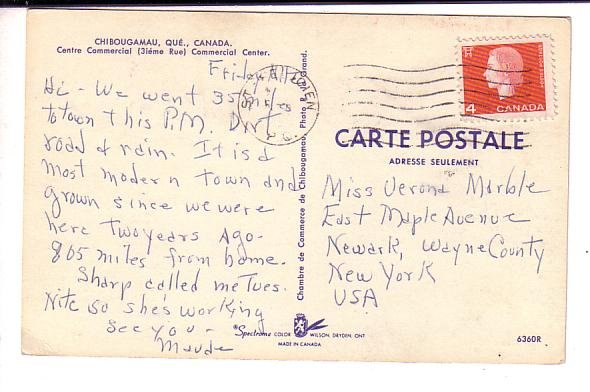 CHIBOUGAMAU, QUÉ., CANADA.
Centre Commercial (3iéme Rue) Commercial Center.
Friday
Hi - We went 35 miles
to town this P.M. Dirt
road & rain. It is a
most modern town and
grown since we were
here two years ago -
805 miles from home.
Sharp called me Tues.
Nite so she's working
See you -
Maude
Chambre de Commerce de Chibougamau. Photo R. V. Grand.
"Spectrome COLOR WILSON, DRYDEN, ONT
MADE IN CANADA
4
CANADA
POSTES POSTAGE
CARTE POSTALE
ADRESSE SEULEMENT
Miss Verona Marble
East Maple Avenue
Newark, Wayne County
New York
USA
6360R